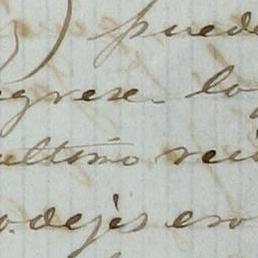 puede
egrese. lo
ultimo reci
o. dejes ero